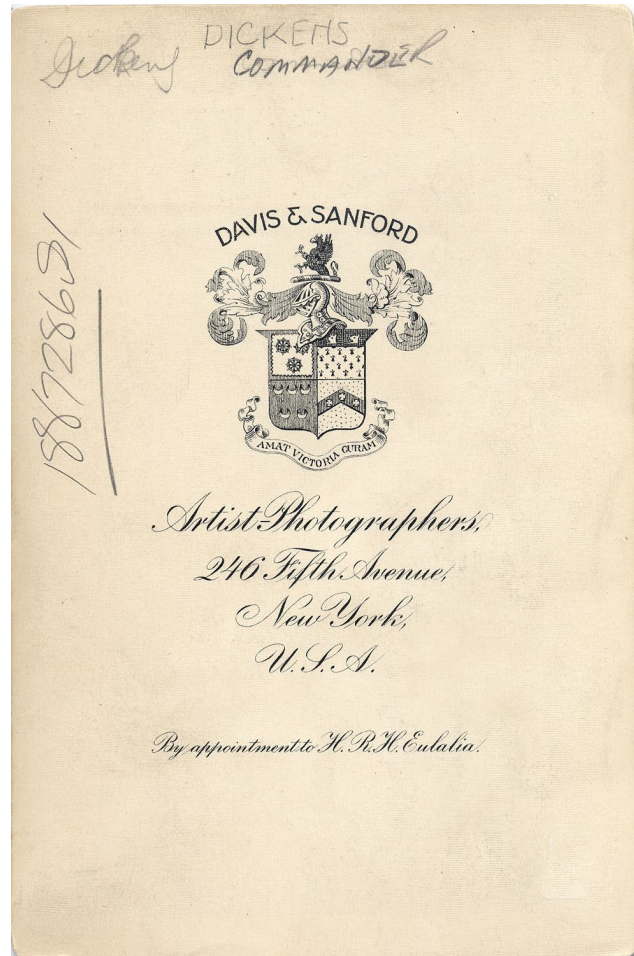 Dickens
DICKENS
COMMANDER
DAVIS & SANFORD
AMAT VICTORIA CURAM
Artist-Photographers,
246 Fifth Avenue,
New York,
U.S.A.
By appointment to H.R.H. Eulalia.